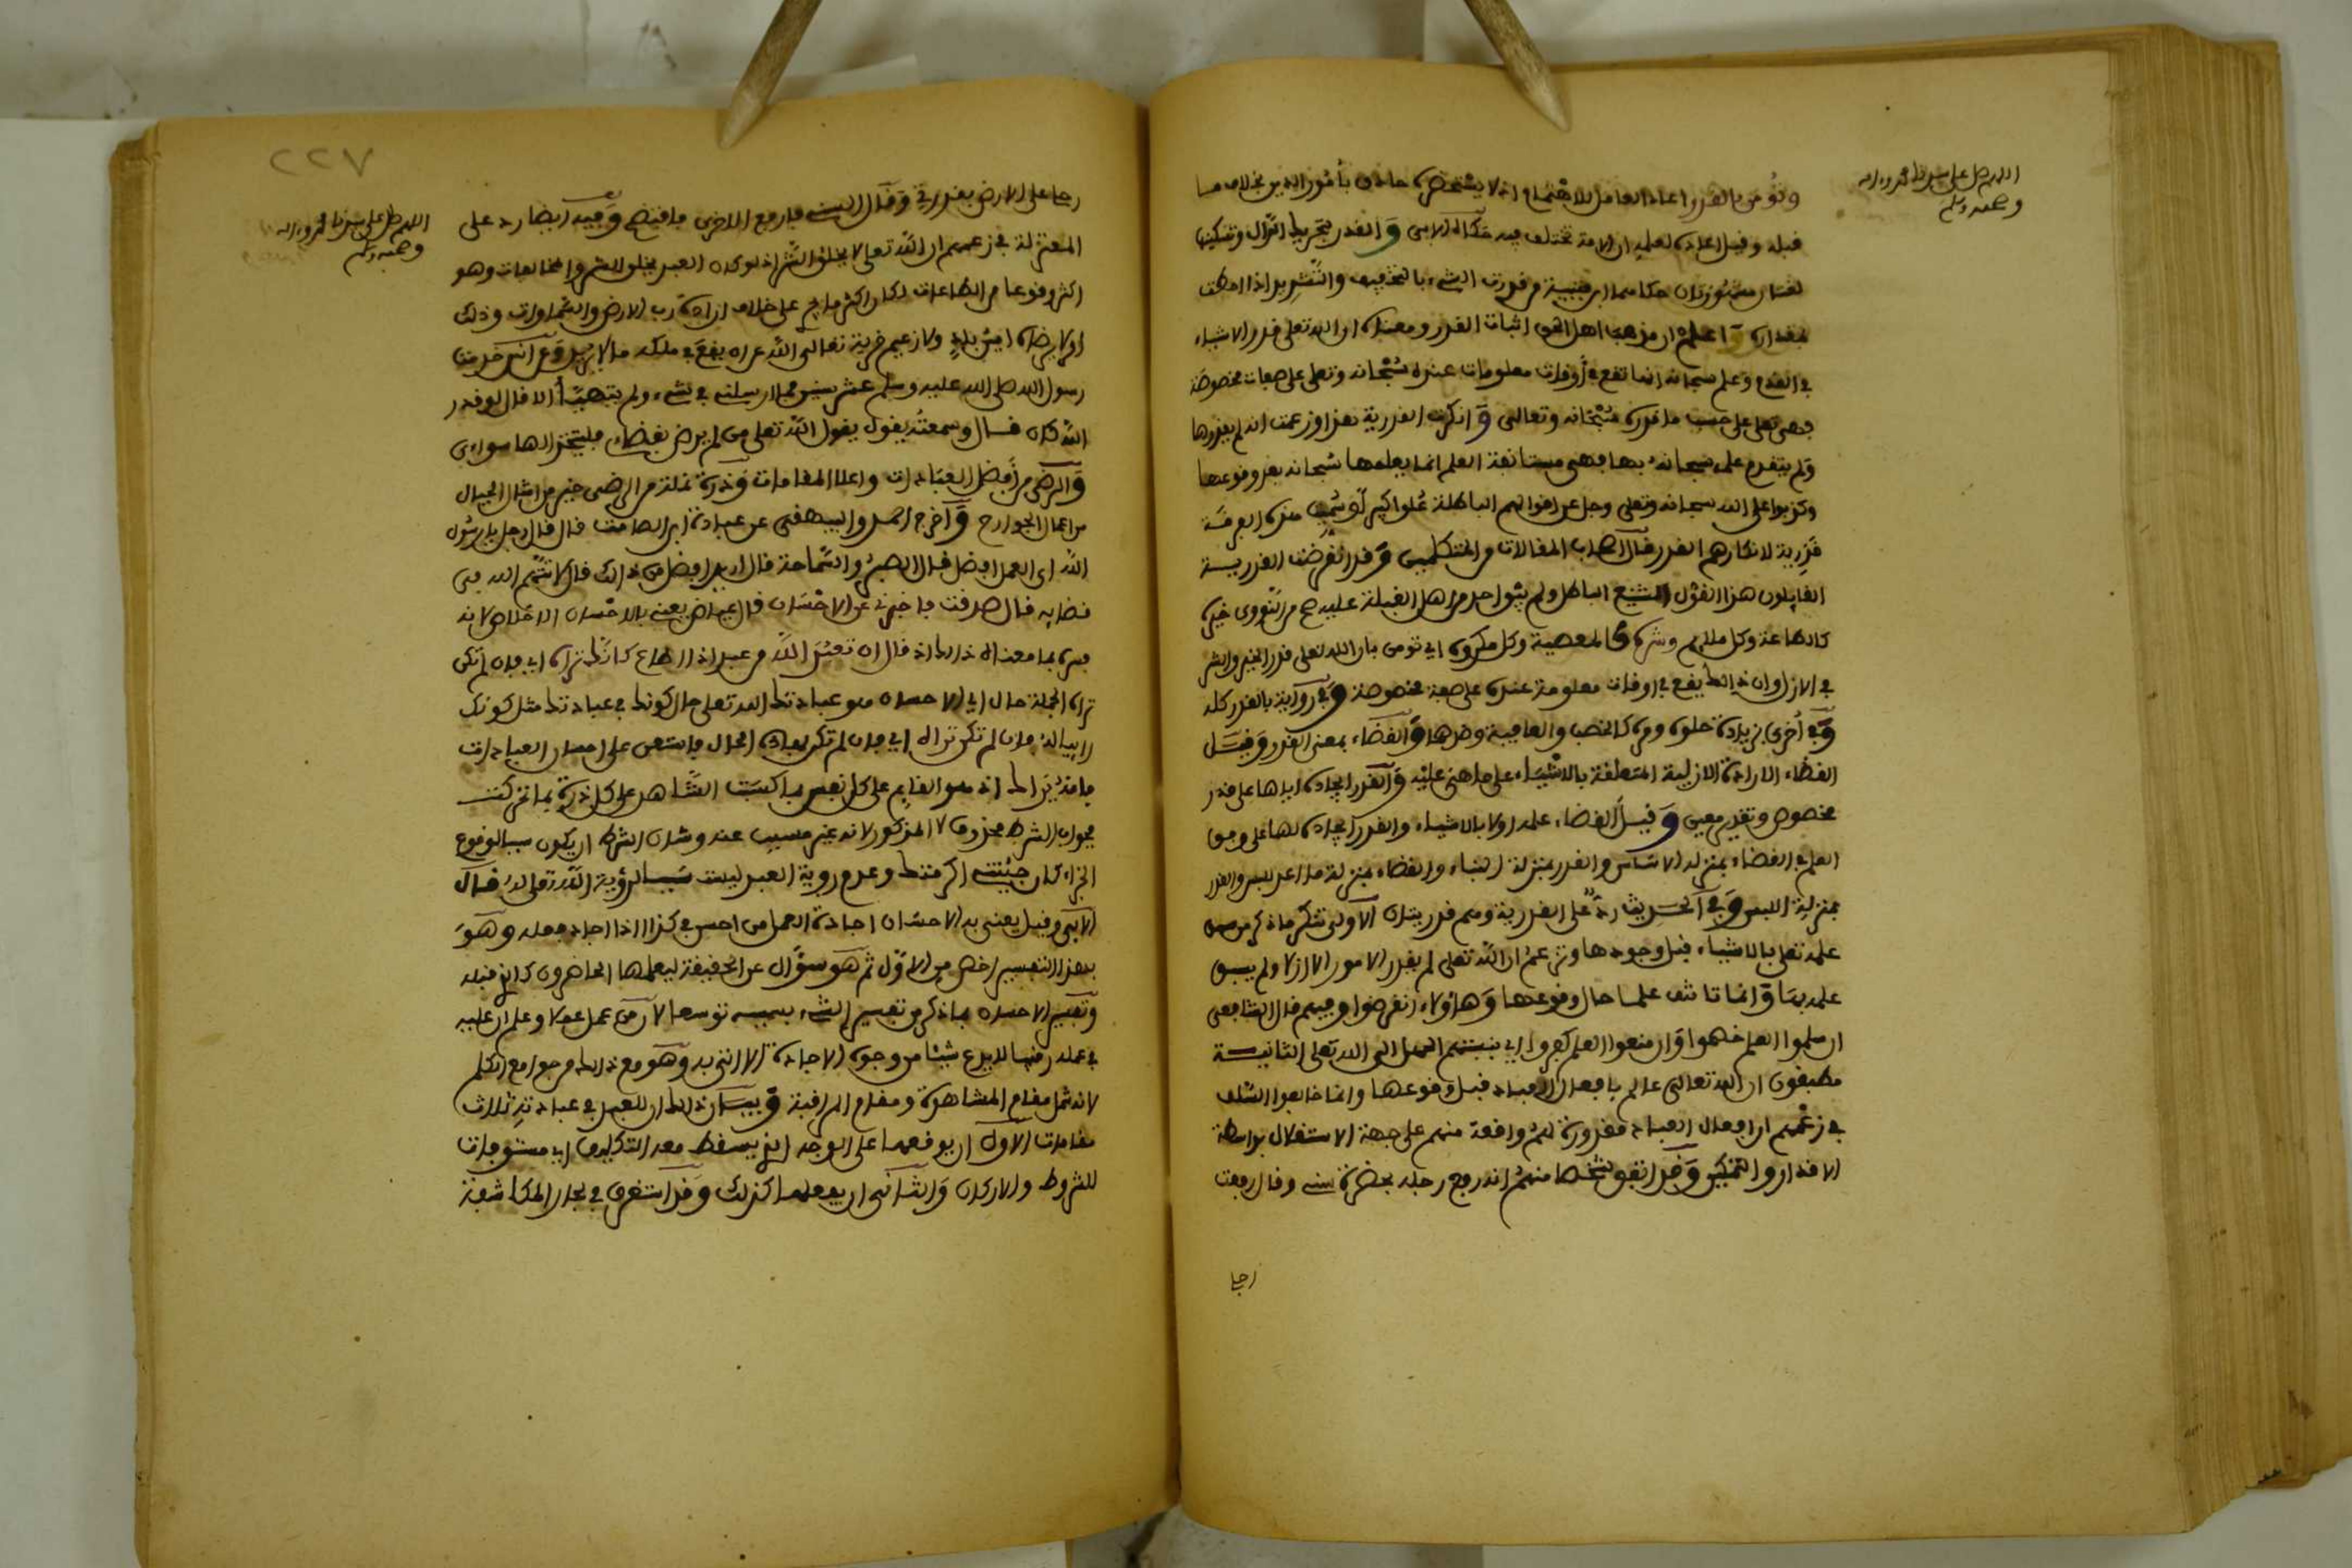 اللهم صل على سيدنا محمد وءاله
وصحبه وسلم
وتؤمن بالقدر اعاد العامل للاهتمام اذ لا يستحضره حاذق بأمور الدين بخلاف ما
قبله وقيل اعاده لعلمه ان الامة تختلف فيه حكاه الابي والقدر بتحريك الدال وتسكينها
لغتان مشهورتان حكاهما ابن قتيبة من قدرت الشيء بالتخفيف والتشديد اذا احطت
بمقداره واعلم ان مذهب اهل الحق اثبات القدر ومعناه ان الله تعلى قدر الاشياء
في القدم وعلم سبحانه انها تقع في أوقات معلومات عنده سبحانه وتعلى على صفات مخصوصة
فهي تقع على حسب ما قدره سبحانه وتعالى وانكرت القدرية هذا وزعمت انه لم يقدرها
ولم يتقدم علمه سبحانه بها وهي مستانفة العلم انما يعلمها سبحانه بعد وقوعها
وكذبوا على الله سبحانه وتعلى وجل عن اقوالهم الباطلة علوا كبيرا وسميت هذه الفرقة
قدرية لانكارهم القدر قال اصحاب المقالات من المتكلمين وقد انقرضت القدرية
القايلون هذا القول الشنيع الباطل ولم يبق احد من اهل القبلة عليه صح من النووي خيره
كالطاعة وكل ملايم وشره كالمعصية وكل مكروه اي تومن بان الله تعلى قدر الخير والشر
في الازل وان ذالك يقع في اوقات معلومة عنده على صفة مخصوصة وفي رواية بالقدر كله
وفي أخرى بزيادة حلوه ومره كالخصب والعافية وضدهما والقضاء بمعنى القدر وقيل
القضاء الارادة الازلية المتعلقة بالاشياء على ما هي عليه والقدر ايجاده اياها على قدر
مخصوص وتقدير معين وقيل القضاء علمه اولا بالاشياء والقدر ايجاده لها على وفق
العلم فالقضاء بمنزلة الاساس والقدر بمنزلة البناء والقضاء بمنزلة ما اعد للبس والقدر
بمنزلة اللبس وفي الحديث رد على القدرية وهم فرقتان الاولى تنكر ما ذكر من سبق
علمه تعلى بالاشياء قبل وجودها وتزعم ان الله تعلى لم يقدر الامور الازلا ولم يسبق
علمه بها وانما تاتنف علمها حال وقوعها وهاؤلاء انقرضوا وفيهم قال الشافعي
ان سلموا العلم خصموا وان منعوا العلم كفروا اي بنسبتهم الجهل الى الله تعلى الثانية
مطبقون ان الله تعالى عالم بافعال العباد قبل وقوعها وانما خالفوا السلف
في زعمهم ان افعال العباد مقدورة لهم وواقعة منهم على جهة الاستقلال بواسطة
الاقدار والتمكين وقد اتفق شخصا منهم انه رفع رجله بحضرة سني وقال رفعت
رجلي
٢٢٧
اللهم صل على سيدنا محمد وءاله
وصحبه وسلم
رجلي على الارض بقدرتي وقال السني فارفع الاخرى فانقطع وفيه ايضا رد على
المعتزلة في زعمهم ان الله تعلى لا يخلق الشر اذ لو كان العبد يخلق الشر والمخالفات وهو
اكثر وقوعا من الطاعات لكان اكثر ما يقع على خلاف ارادة رب الارض والسماوات وذلك
لا يرضاه امير بلد ولا زعيم قرية تعالى الله عن ان يقع في ملكه ما لا يريد وعن انس خدمت
رسول الله صلى الله عليه وسلم عشر سنين فما ارسلني في شيء ولم يتهيأ الا قال لو قدر
الله كان قال وسمعته يقول يقول الله تعلى من لم يرض بقضاءي فليتخذ الها سواءي
والرضى من أفضل العبادات واعلا المقامات وذرة من الرضى خير من امثال الجبال
من اعمال الجوارح وأخرج احمد والبيهقي عن عبادة ابن الصامت قال قال رجل يا رسول
الله اي العمل افضل قال الصبر والسماحة قال اريد افضل من ذالك قال لا تتهم الله في
قضايه قال صدقت فاخبرني عن الاحسان قال عياض يعني بالاحسان الاخلاص لانه
فسره بما معناه ذالك اذ قال ان تعبد الله من عبد اذا اطاع كانك تراه اي فان لم تكن
تراه الجملة حال اي الاحسان هو عبادتك الله تعلى حال كونك في عبادتك مثل كونك
رائيا له فان لم تكن تراه اي فان لم تكن الحال فاستمر على احسان العبادات
فانه يراك اذ هو القايم على كل نفس بما كسبت الشاهد على كل ذرة بما تحركت
فجواب الشرط محذوف لا المذكور لانه غير مسبب عنه وشان الشرط ان يكون سببا لوقوع
الجزاء كان جئتني اكرمتك وعدم روية العبد ليست سببا لرؤية الله تعلى له قال
الابي وقيل يعني بالاحسان اجادة العمل من احسن في كذا اذا اجاد فعله وهو
بهذا التفسير اخص من الاول ثم هو سؤال عن الحقيقة ليعلمها الحاضرون كالذي قبله
وتفسير الاحسان بما ذكر من تفسير الشيء بسببه توسعا لان من عمل عملا وعلم ان عليه
في عمله رقيبا لا يدع شيئا من وجوه الاجادة الا اتى به وهو مع ذالك من جوامع الكلم
لانه شمل مقام المشاهدة ومقام المراقبة وبيان ذالك ان للعبد في عبادته ثلاث
مقامات الاول ان يوقعها على الوجه الذي يسقط معه التكليف اي مستوفات
للشروط والاركان والثاني ان يفعلها كذلك وقد استغرق في بحار المكاشفة